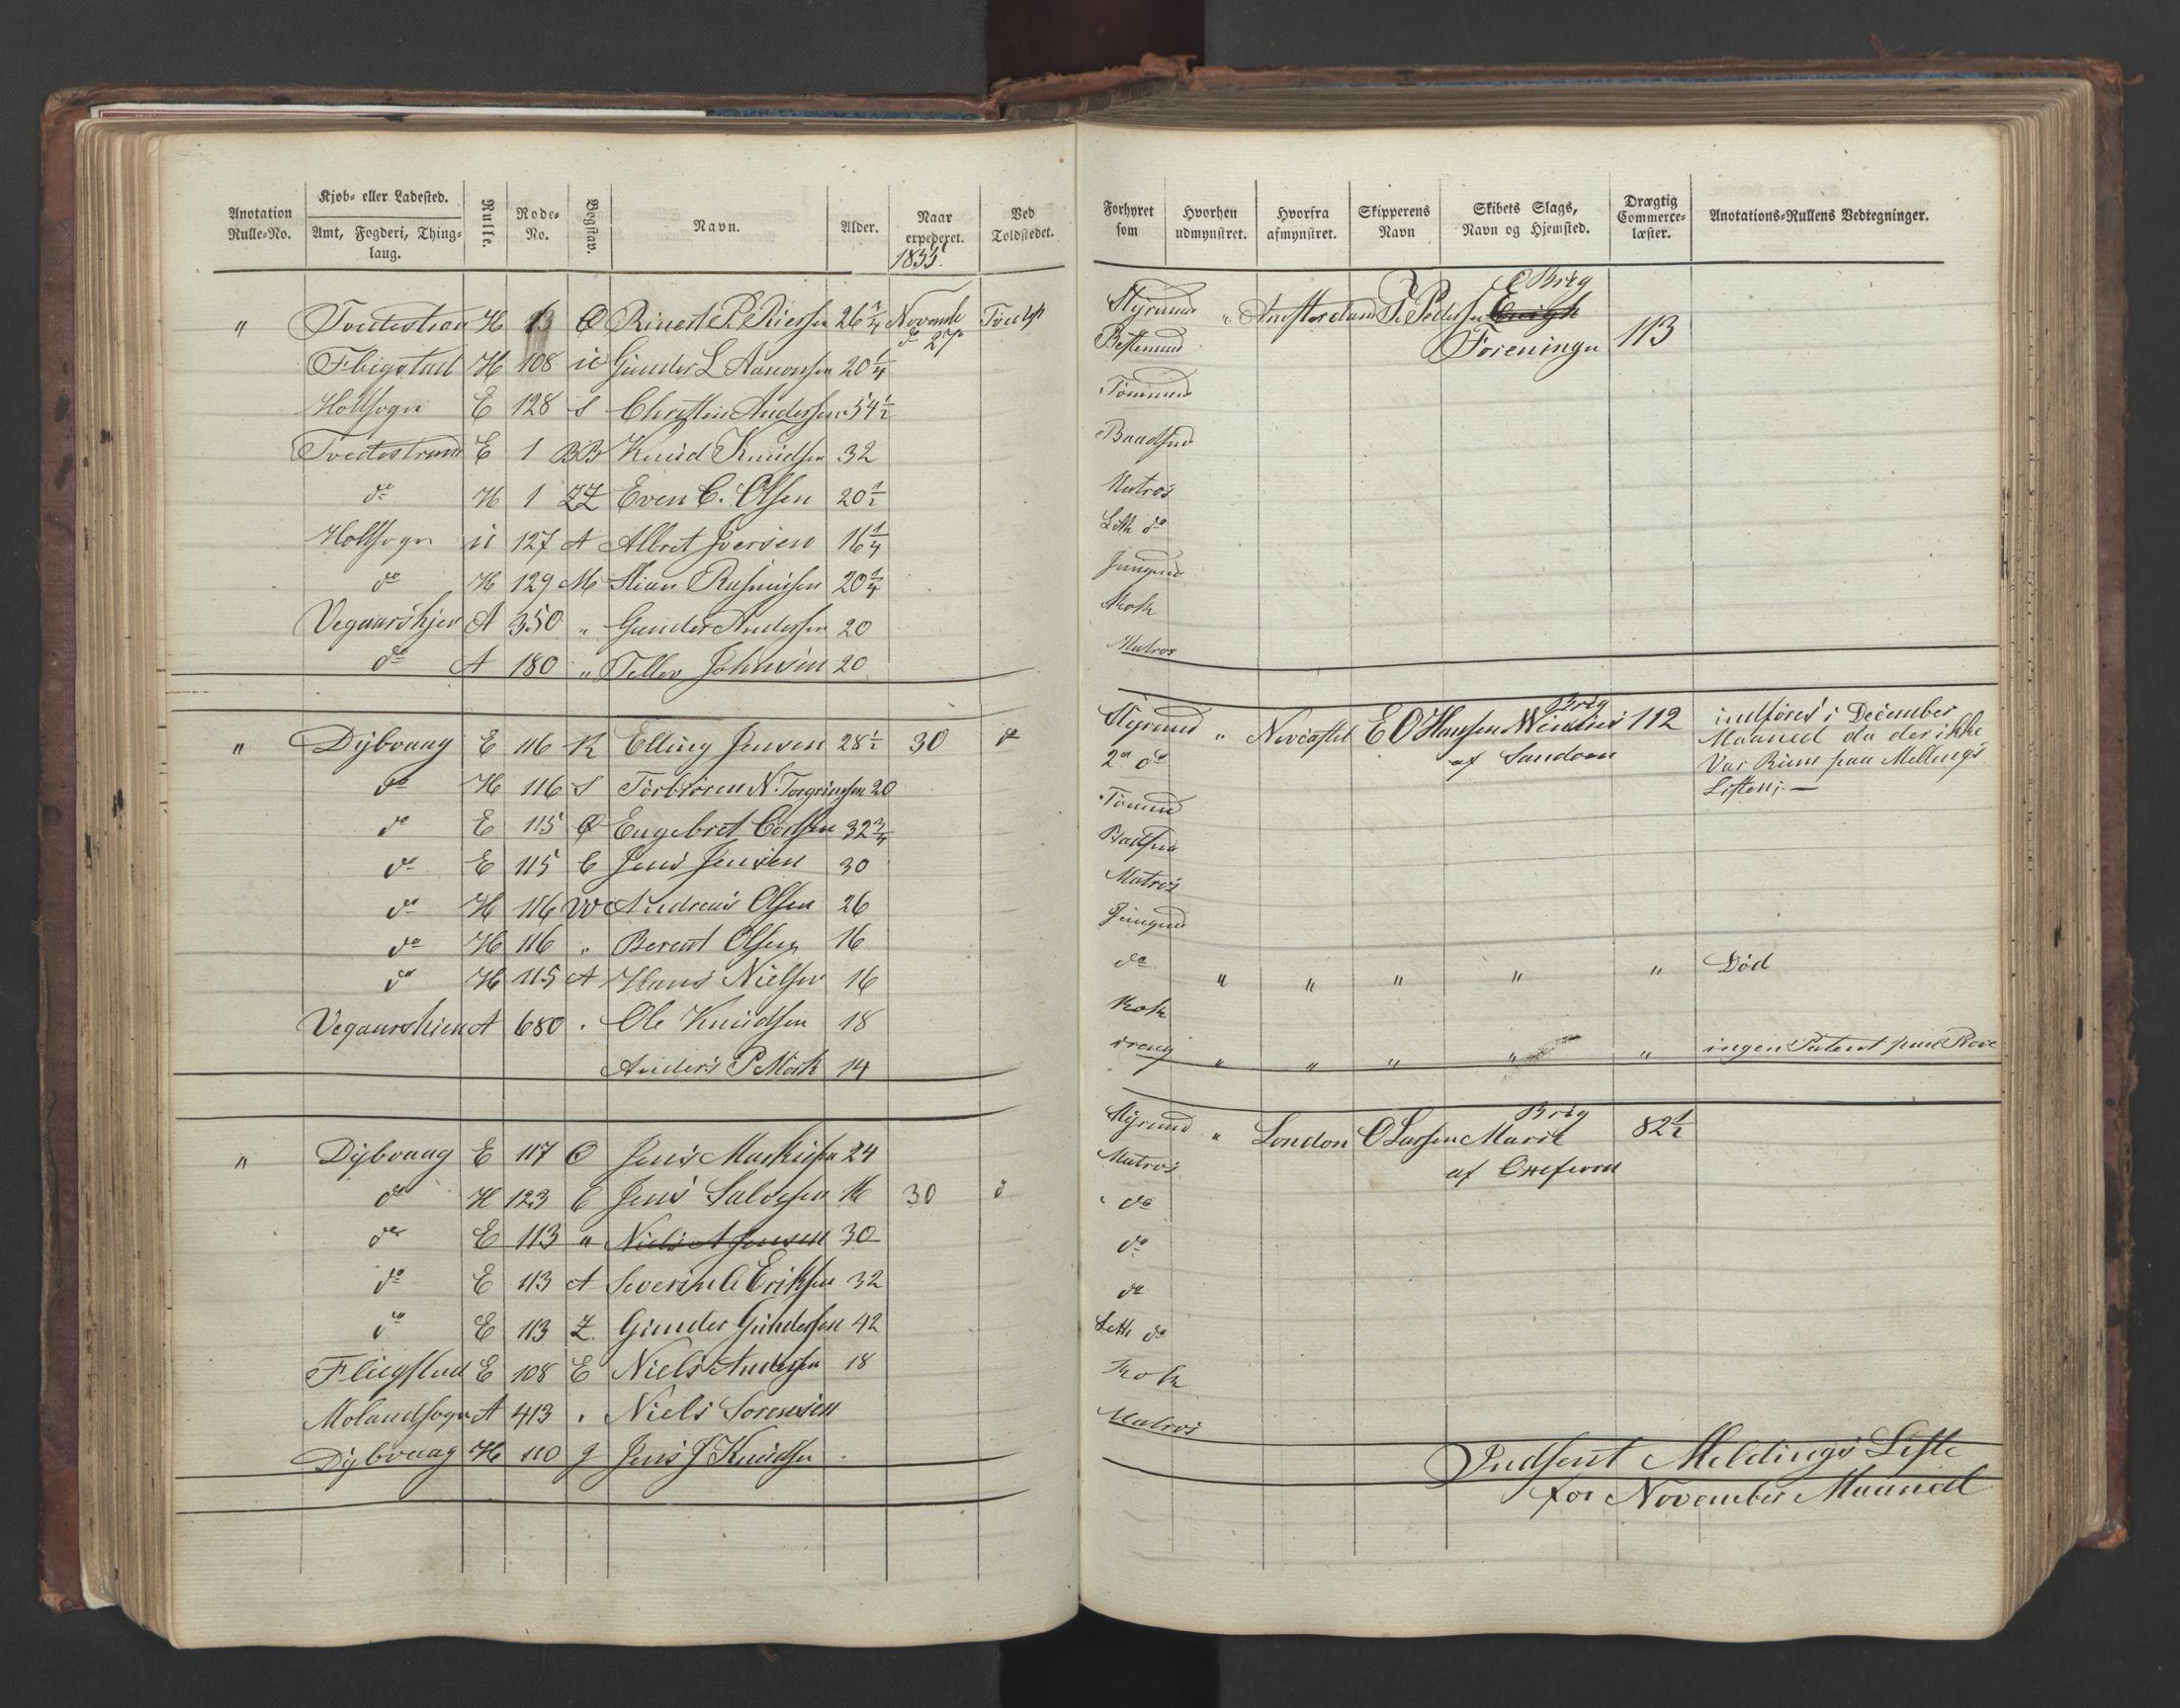 Anotation Rulle-No. Kjøb- eller Ladested. Amt, Fogderi, Thinglaug. Rulle. Rode-No. Bogstav. Navn. Alder. Naar expederet. Ved Toldstedet.
1855
" H 13 26 3/4 Novembr
H 108 Gunder L Aanonsen 20 1/4
Holtsogn E 128 S Andersen 54 1/2
Tvedestrand E 1 BB Knud Knudsen 32
do H 1 ZZ Even C. Olsen 20 1/2
Holtsogn 127 A Albret Iversen 16 1/4
do H 129 M Rasmusen 20 1/4
A 350 " Gunder Andersen 20
do A 180 " Tellev Johnsen 20
" Dybvaag E 116 K Elling Jensen 28 1/2 30 do
do H 116 S 20
do E 115 Engebret 32 3/4
do E 115 C Jens Jensen 30
do H 116 W Andreas Olsen 26
do H 116 . Berent Olsen 16
do H 115 A Hans Nielsen 16
A 680 . Ole Knudsen 18
Anders P 14
" Dybvaag E 117 O Jens 24
do H 123 C Jens Salvesen 16 30 do
do E 113 " Niels A Jensen 30
do E 113 A Severin Eriksen 32
do E 113 Z. Gunder Gundersen 42
E 108 E Niels Andersen 18
Molandsogn A 413 . Niels Sorensen
Dybvaag H 110 g Jens J Knudsen .
Forhyret som Hvorhen udmynstret. Hvorfra afmynstret. Skipperens Navn Skibets Slags, Navn og Hjemsted. Drægtig Commerce-læster. Anotations-Rullens Vedtegninger.
Brig
Styrmd " Amsterdam P Pedersen
Bestemand Foreningen 113
Tømmd
Baadsmd
Matros
Lett do
Jungmd
Kok
Matros
Brig
Styrmd " Newcastel E O Hansen 112 indføres i December
2n do af Sandøen Maaned da der ikke
Var Rum paa Mellings
Listen; —
Tømmd
Baadsmd
Matros
Jungmd
do " " " " " Død
Kok
dreng " " " " " ingen Patent paa
Brig
Styrmd " London O Larsen Marie 82 1/2
Matros af
do
do
do
Lett do
Kok
Matros
Indsent Meldings Liste
for November Maaned